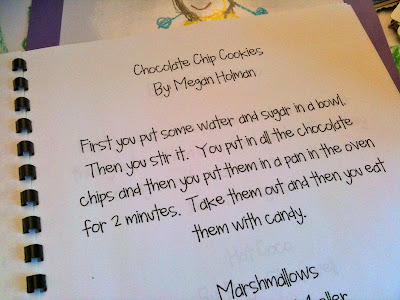 Chocolate Chip Cookies
By: Megan Holman
First you put some water and sugar in a bowl.
Then you stir it. You put in all the chocolate
chips and then you put them in a pan in the oven
for 2 minutes. Take them out and then you eat
them with candy.
Hot Coco
Marshmallows